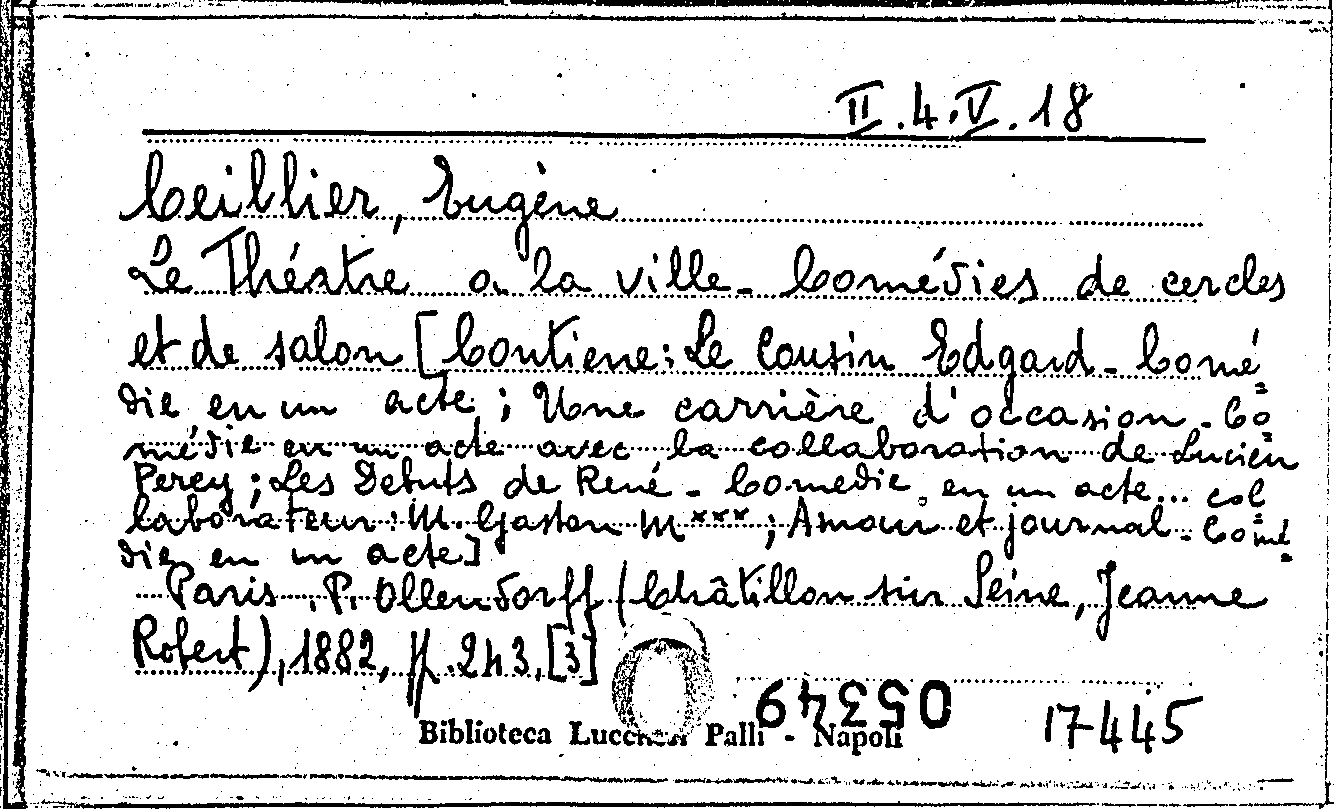 II.4.V.18
Ceillier, Eugène
Le Théatre a la ville - Comédies de cercles
et de salon [Contiene: Le Cousin Edgard - Comé=
die en un acte; Une carrière d'occasion - Co=
médie en un acte avec la collaboration de Lucien
Percy; Les Debuts de René - Comedie en un acte... col=
laborateur: M. Gaston M×××; Amour et journal - Comé=
die en un acte]
Paris, P. Ollendorff (Châtillon sur Seine, Jeanne
Robert), 1882, pp. 243, [3]
05349
17445
Biblioteca Lucchesi Palli - Napoli